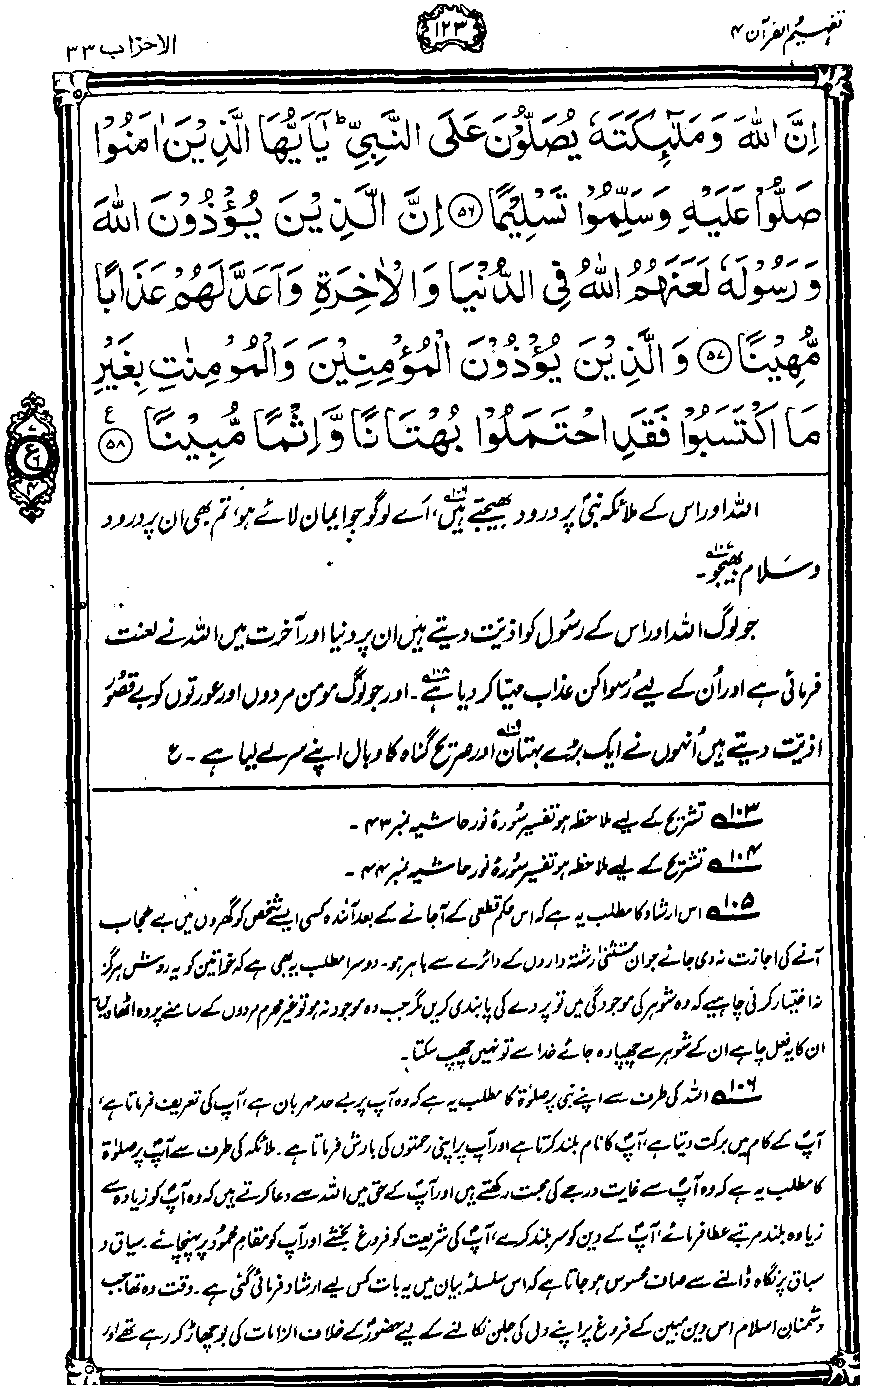 تفہیم القرآن ۴
۱۲۳
الاحزاب ۳۳
اِنَّ اللّٰهَ وَمَلٰٓئِكَتَهٗ يُصَلُّوْنَ عَلَى النَّبِيِّ ؕ يٰۤاَيُّهَا الَّذِيْنَ اٰمَنُوْا
صَلُّوْا عَلَيْهِ وَسَلِّمُوْا تَسْلِيْمًا ﴿۵۶﴾ اِنَّ الَّذِيْنَ يُؤْذُوْنَ اللّٰهَ
وَرَسُوْلَهٗ لَعَنَهُمُ اللّٰهُ فِي الدُّنْيَا وَالْاٰخِرَةِ وَاَعَدَّ لَهُمْ عَذَابًا
مُّهِيْنًا ﴿۵۷﴾ وَالَّذِيْنَ يُؤْذُوْنَ الْمُؤْمِنِيْنَ وَالْمُؤْمِنٰتِ بِغَيْرِ
مَا اكْتَسَبُوْا فَقَدِ احْتَمَلُوْا بُهْتَانًا وَّاِثْمًا مُّبِيْنًا ﴿۵۸﴾ ع
اللہ اور اس کے ملائکہ نبیؐ پر درود بھیجتے ہیں۱۰۶، اَے لوگو جو ایمان لائے ہو، تم بھی ان پر درود
و سلام بھیجو۱۰۷۔
جو لوگ اللہ اور اس کے رسُول کو اذیّت دیتے ہیں ان پر دنیا اور آخرت میں اللہ نے لعنت
فرمائی ہے اور اُن کے لیے رُسوا کن عذاب مہیّا کر دیا ہے۱۰۸۔ اور جو لوگ مومن مردوں اور عورتوں کو بے قصُور
اذیّت دیتے ہیں اُنہوں نے ایک بڑے بہتان۱۰۹ اور صریح گناہ کا وبال اپنے سر لے لیا ہے۔ ع
۱۰۳ تشریح کے لیے ملاحظہ ہو تفسیر سُورۂ نور حاشیہ نمبر ۴۳۔
۱۰۴ تشریح کے لیے ملاحظہ ہو تفسیر سُورۂ نور حاشیہ نمبر ۴۴۔
۱۰۵ اس ارشاد کا مطلب یہ ہے کہ اس حکم قطعی کے آجانے کے بعد آئندہ کسی ایسے شخص کو گھروں میں بے حجاب
آنے کی اجازت نہ دی جائے جو ان مستثنیٰ رشتہ داروں کے دائرے سے باہر ہو۔ دوسرا مطلب یہ بھی ہے کہ خواتین کو یہ روش ہرگز
نہ اختیار کرنی چاہیے کہ وہ شوہر کی موجودگی میں تو پردے کی پابندی کریں مگر جب وہ موجود نہ ہو تو غیر محرم مردوں کے سامنے پردہ اٹھا دیں۔
ان کا یہ فعل چاہے ان کے شوہر سے چھپا رہ جائے خدا سے تو نہیں چھپ سکتا۔
۱۰۶ اللہ کی طرف سے اپنے نبی پر صلوٰۃ کا مطلب یہ ہے کہ وہ آپ پر بے حد مہربان ہے، آپ کی تعریف فرماتا ہے،
آپؐ کے کام میں برکت دیتا ہے، آپؐ کا نام بلند کرتا ہے اور آپ پر اپنی رحمتوں کی بارش فرماتا ہے۔ ملائکہ کی طرف سے آپؐ پر صلوٰۃ
کا مطلب یہ ہے کہ وہ آپؐ سے غایت درجے کی محبت رکھتے ہیں اور آپؐ کے حق میں اللہ سے دعا کرتے ہیں کہ وہ آپؐ کو زیادہ سے
زیادہ بلند مرتبے عطا فرمائے، آپؐ کے دین کو سربلند کرے، آپؐ کی شریعت کو فروغ بخشے اور آپ کو مقام محمود پر پہنچائے۔ سیاق و
سباق پر نگاہ ڈالنے سے صاف محسوس ہو جاتا ہے کہ اس سلسلۂ بیان میں یہ بات کس لیے ارشاد فرمائی گئی ہے۔ وقت وہ تھا جب
دشمنانِ اسلام اس دین مبین کے فروغ پر اپنے دل کی جلن نکالنے کے لیے حضورؐ کے خلاف الزامات کی بوچھاڑ کر رہے تھے اور